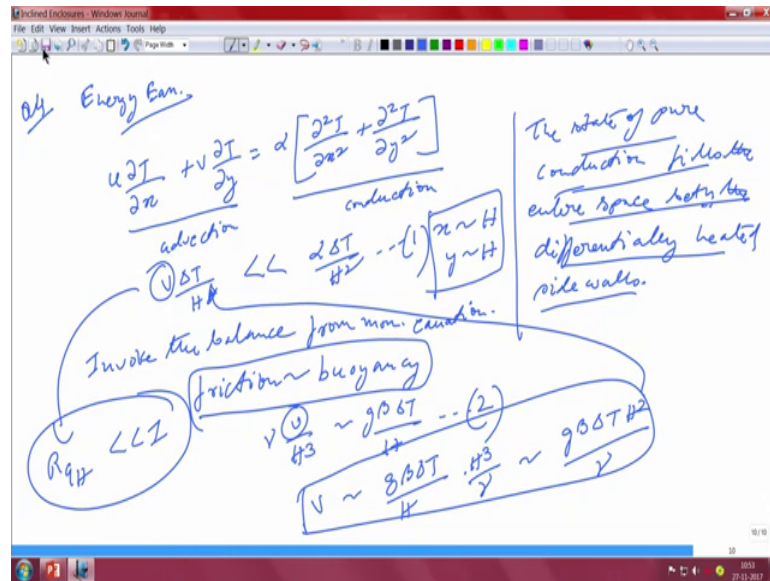 Inclined Enclosures - Windows Journal
File Edit View Insert Actions Tools Help
Page Width
Energy Eqn.
u ∂T/∂x + v ∂T/∂y = α [∂²T/∂x² + ∂²T/∂y²]
advection
conduction
v ΔT/H << α ΔT/H² --(1) x~H
y~H
Invoke the balance from mom. equation.
friction ~ buoyancy
ν v/H³ ~ gβΔT/H --(2)
RaH <<1
v ~ gβΔT/H · H³/ν ~ gβΔT H²/ν
The state of pure
conduction fills the
entire space betn the
differentially heated
side walls.
10/10
10
10:53
27-11-2017